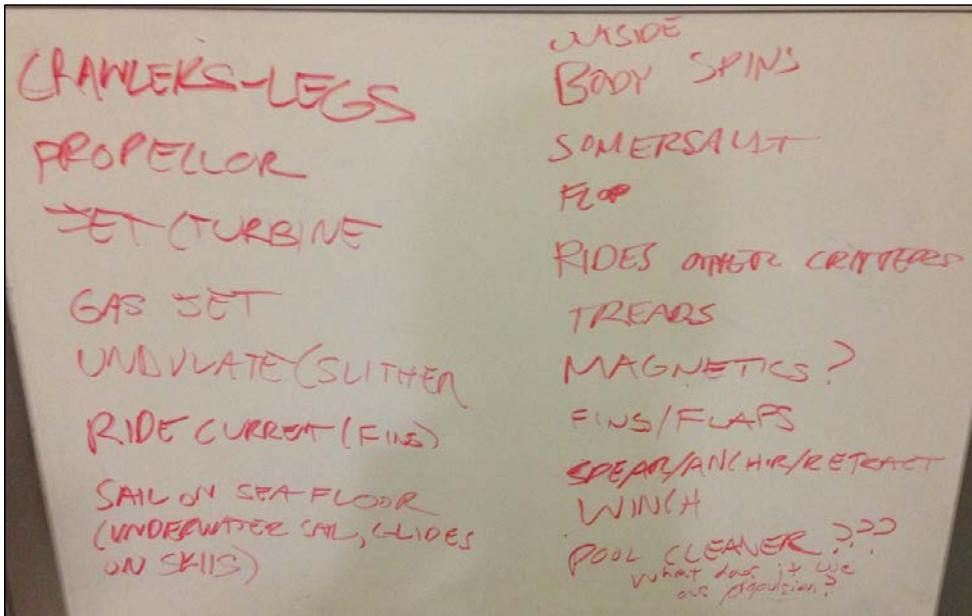 CRAWLERS-LEGS
PROPELLOR
JET (TURBINE
GAS JET
UNDULATE (SLITHER
RIDE CURRENT (FINS)
SAIL ON SEA-FLOOR
(UNDERWATER SAIL, GLIDES
ON SKIIS)
INSIDE
BODY SPINS
SOMERSAULT
FLOP
RIDES OTHER CRITTERS
TREADS
MAGNETICS?
FINS/FLAPS
SPEAR/ANCHOR/RETRACT
WINCH
POOL CLEANER???
What does it use
as propulsion?